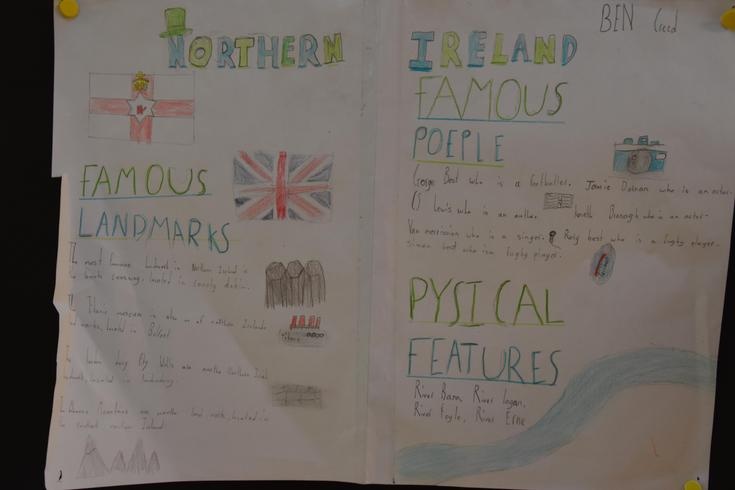 BEN Creed
NORTHERN IRELAND
FAMOUS
LANDMARKS
The most famous landmark in Northern Ireland is
the giants causeway, located in county
The Titanic museum is also on of northern Irelands
landmarks, located in Belfast
Derry City Walls are another Northern Irish
landmark, located in
Mourne Mountains are another land mark, located in
northern Ireland
FAMOUS
POEPLE
George Best who is a footballer. Jamie Dornan who is an actor.
C Lewis who is an author. Kenneth Branagh who is an actor.
Van morrison who is a singer. Rory best who is a rugby player.
simon best who is a rugby player.
PYSICAL
FEATURES
River Bann, River lagan,
River Foyle, River Erne